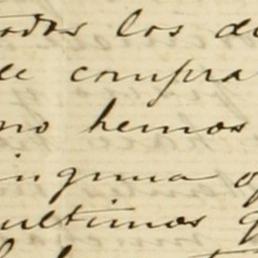 todos los
de compra
no hemos
inguna
ultimos